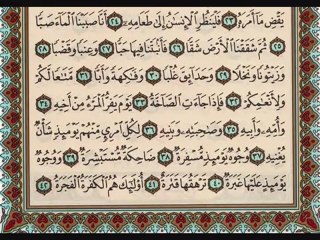 يَقْضِ مَآ أَمَرَهُۥ ٢٣ فَلْيَنظُرِ ٱلْإِنسَٰنُ إِلَىٰ طَعَامِهِۦٓ ٢٤ أَنَّا صَبَبْنَا ٱلْمَآءَ صَبًّا
٢٥ ثُمَّ شَقَقْنَا ٱلْأَرْضَ شَقًّا ٢٦ فَأَنۢبَتْنَا فِيهَا حَبًّا ٢٧ وَعِنَبًا وَقَضْبًا ٢٨
وَزَيْتُونًا وَنَخْلًا ٢٩ وَحَدَآئِقَ غُلْبًا ٣٠ وَفَٰكِهَةً وَأَبًّا ٣١ مَّتَٰعًا لَّكُمْ
وَلِأَنْعَٰمِكُمْ ٣٢ فَإِذَا جَآءَتِ ٱلصَّآخَّةُ ٣٣ يَوْمَ يَفِرُّ ٱلْمَرْءُ مِنْ أَخِيهِ ٣٤
وَأُمِّهِۦ وَأَبِيهِ ٣٥ وَصَٰحِبَتِهِۦ وَبَنِيهِ ٣٦ لِكُلِّ ٱمْرِئٍ مِّنْهُمْ يَوْمَئِذٍ شَأْنٌ
يُغْنِيهِ ٣٧ وُجُوهٌ يَوْمَئِذٍ مُّسْفِرَةٌ ٣٨ ضَاحِكَةٌ مُّسْتَبْشِرَةٌ ٣٩ وَوُجُوهٌ
يَوْمَئِذٍ عَلَيْهَا غَبَرَةٌ ٤٠ تَرْهَقُهَا قَتَرَةٌ ٤١ أُو۟لَٰٓئِكَ هُمُ ٱلْكَفَرَةُ ٱلْفَجَرَةُ ٤٢